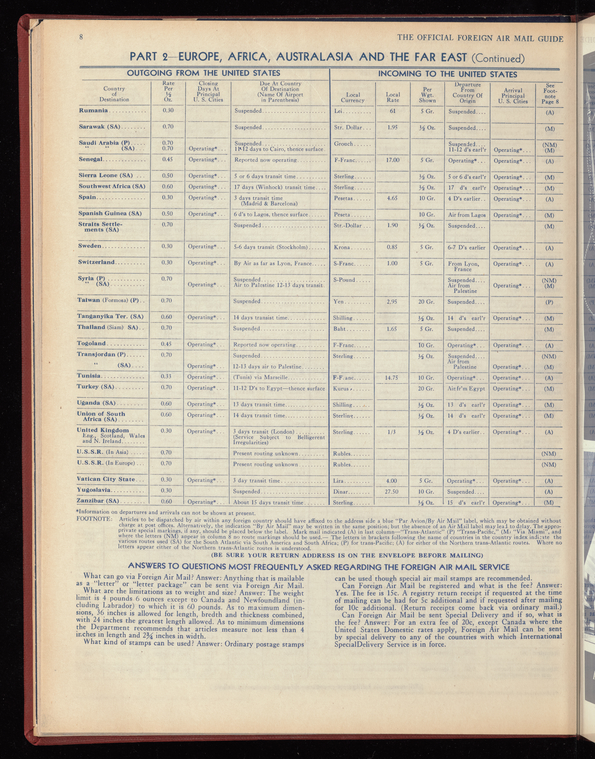 8
THE OFFICIAL FOREIGN AIR MAIL GUIDE
PART 2—EUROPE, AFRICA, AUSTRALASIA AND THE FAR EAST (Continued)
OUTGOING FROM THE UNITED STATES
INCOMING TO THE UNITED STATES
Country of Destination | Rate Per ½ Oz. | Closing Days At Principal U. S. Cities | Due At Country Of Destination (Name Of Airport in Parenthesis) | Local Currency | Local Rate | Per Wgt. Shown | Departure From Country Of Origin | Arrival Principal U. S. Cities | See Footnote Page 8
Rumania 0.30 Suspended Lei 61 5 Gr. Suspended (A)
Sarawak (SA) 0.70 Suspended Str. Dollar 1.95 ½ Oz. Suspended (M)
Saudi Arabia (P) 0.70 Suspended Grouch Suspended (NM)
" " (SA) 0.70 Operating* 11-12 days to Cairo, thence surface 11-12 d's earl'r Operating* (M)
Senegal 0.45 Operating* Reported now operating F-Franc 17.00 5 Gr. Operating* Operating* (A)
Sierra Leone (SA) 0.50 Operating* 5 or 6 days transit time ½ Oz. 5 or 6 d's earl'r Operating* (M)
Southwest Africa (SA) 0.60 Operating* 17 days (Winhock) transit time ½ Oz. 17 d's earl'r Operating* (M)
Spain 0.30 Operating* 3 days transit time Pesetas 4.65 10 Gr. 4 D's earlier Operating* (A)
(Madrid & Barcelona)
Spanish Guinea (SA) 0.50 Operating* 6 d's to Lagos, thence surface Peseta 10 Gr. Air from Lagos Operating* (M)
Straits Settlements (SA) 0.70 Suspended Str.-Dollar 1.90 ½ Oz. Suspended (M)
Sweden 0.30 Operating* 5-6 days transit (Stockholm) Krona 0.85 5 Gr. 6-7 D's earlier Operating* (A)
Switzerland 0.30 Operating* By Air as far as Lyon, France S-Franc 1.00 5 Gr. From Lyon, France Operating* (A)
Syria (P) 0.70 Suspended S-Pound Suspended (NM)
" (SA) Operating* Air to Palestine 12-13 days transit Air from Palestine Operating* (M)
Taiwan (Formosa) (P) 0.70 Suspended Yen 2.95 20 Gr. Suspended (P)
Tanganyika Ter. (SA) 0.60 Operating* 14 days transist time Shilling ½ Oz. 14 d's earl'r Operating* (M)
Thailand (Siam) SA) 0.70 Suspended Baht 1.65 5 Gr. Suspended (M)
Togoland 0.45 Operating* Reported now operating F-Franc 10 Gr. Operating* Operating* (A)
Transjordan (P) 0.70 Suspended Sterling ½ Oz. Suspended (NM)
" (SA) Operating* 12-13 days air to Palestine Air from Palestine Operating* (M)
Tunisia 0.51 Operating* (Tunis) via Marseille F-Franc 14.75 10 Gr. Operating* Operating* (A)
Turkey (SA) 0.70 Operating* 11-12 D's to Egypt—thence surface Kurus 20 Gr. Air fr'm Egypt Operating* (M)
Uganda (SA) 0.60 Operating* 13 days transit time Shilling ½ Oz. 13 d's earl'r Operating* (M)
Union of South Africa (SA) 0.60 Operating* 14 days transit time Sterling ½ Oz. 14 d's earl'r Operating* (M)
United Kingdom 0.30 Operating* 3 days transit (London) Sterling 1/3 ½ Oz. 4 D's earlier Operating* (A)
Eng., Scotland, Wales and N. Ireland (Service Subject to Belligerent Irregularities)
U.S.S.R. (In Asia) 0.70 Present routing unknown Rubles (NM)
U.S.S.R. (In Europe) 0.70 Present routing unknown Rubles (NM)
Vatican City State 0.30 Operating* 3 day transit time Lira 4.00 5 Gr. Operating* Operating* (A)
Yugoslavia 0.30 Suspended Dinar 27.50 10 Gr. Suspended (A)
Zanzibar (SA) 0.60 Operating* About 15 days transit time Sterling ½ Oz. 15 d's earl'r Operating* (M)
*Information on departures and arrivals can not be shown at present.
FOOTNOTE: Articles to be dispatched by air within any foreign country should have affixed to the address side a blue "Par Avion/By Air Mail" label, which may be obtained without
charge at post offices. Alternatively, the indication "By Air Mail" may be written in the same position; but the absence of an Air Mail label may lead to delay. The appropriate
special markings should be placed below the label. Mark mail indicated (A) in last column—"Trans-Atlantic" (P) "Trans-Pacific," (M) "Via Miami", and
where the letters (NM) appear in column 8 no route markings should be used.— The letters in brackets following the name of countries in the country index indicate the
various routes used (SA) for the South Atlantic via South America and South Africa; (P) for trans-Pacific; (A) for either of the Northern trans-Atlantic routes. Where no
letters appear either of the Northern trans-Atlantic routes is understood.
(BE SURE YOUR RETURN ADDRESS IS ON THE ENVELOPE BEFORE MAILING)
ANSWERS TO QUESTIONS MOST FREQUENTLY ASKED REGARDING THE FOREIGN AIR MAIL SERVICE
What can go via Foreign Air Mail? Answer: Anything that is mailable
as a "letter" or "letter package" can be sent via Foreign Air Mail.
What are the limitations as to weight and size? Answer: The weight
limit is 4 pounds 6 ounces except to Canada and Newfoundland (including
Labrador) to which it is 60 pounds. As to maximum dimensions,
36 inches is allowed for length, breadth and thickness combined,
with 24 inches the greatest length allowed. As to minimum dimensions
the Department recommends that articles measure not less than 4
inches in length and 2¾ inches in width.
What kind of stamps can be used? Answer: Ordinary postage stamps
can be used though special air mail stamps are recommended.
Can Foreign Air Mail be registered and what is the fee? Answer:
Yes. The fee is 15c. A registry return receipt if requested at the time
of mailing can be had for 5c additional and if requested after mailing
for 10c additional. (Return receipts come back via ordinary mail.)
Can Foreign Air Mail be sent Special Delivery and if so, what is
the fee? Answer: For an extra fee of 20c, except Canada where the
United States Domestic rates apply, Foreign Air Mail can be sent
by special delivery to any of the countries with which International
SpecialDelivery Service is in force.